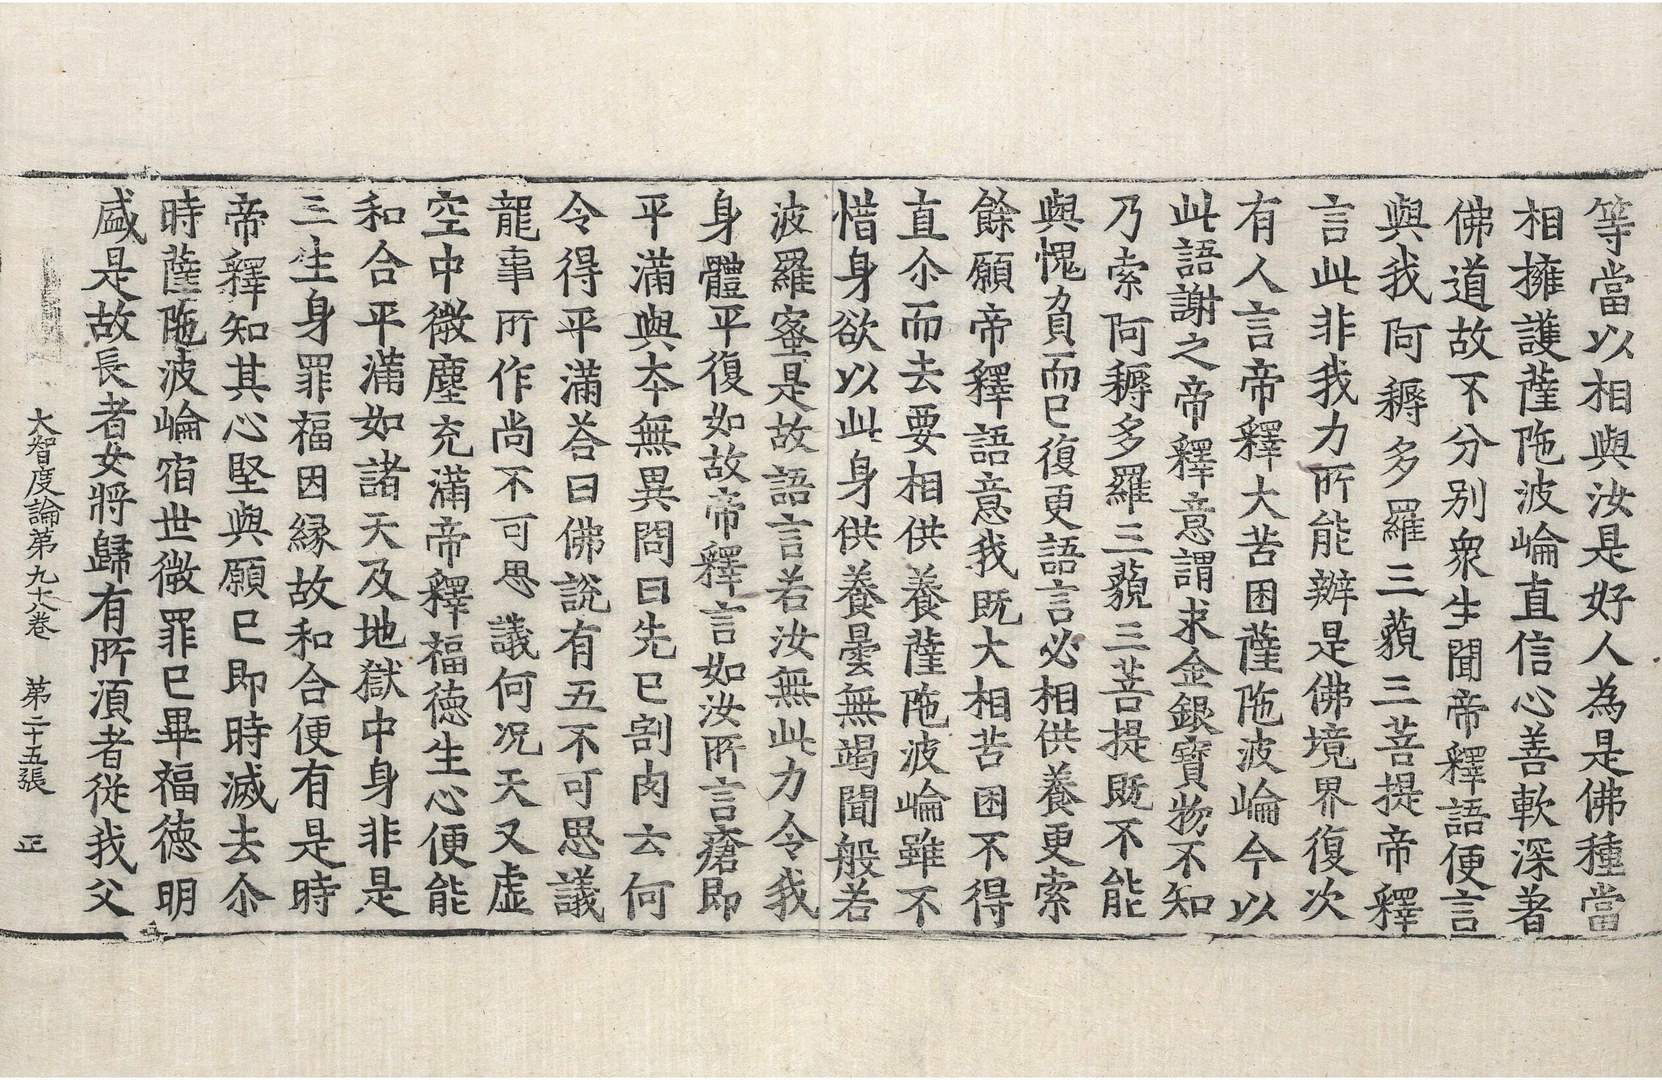 等當以相與汝是好人為是佛種當
相擁護薩陁波崘直信心善軟深著
佛道故不分別衆生聞帝釋語便言
與我阿耨多羅三藐三菩提帝釋
言此非我力所能辦是佛境界復次
有人言帝釋大苦困薩陁波崘今以
此語謝之帝釋意謂求金銀寶物不知
乃索阿耨多羅三藐三菩提既不能
與愧負而已復更語言必相供養更索
餘願帝釋語意我既大相苦困不得
直尒而去要相供養薩陁波崘雖不
惜身欲以此身供養曇無竭聞般若
波羅蜜是故語言若汝無此力令我
身體平復如故帝釋言如汝所言瘡即
平滿與本無異問曰先已割肉云何
令得平滿荅曰佛說有五不可思議
龍事所作尚不可思議何況天又虛
空中微塵充滿帝釋福德生心便能
和合平滿如諸天及地獄中身非是
三生身罪福因緣故和合便有是時
帝釋知其心堅與願已即時滅去尒
時薩陁波崘宿世微罪已畢福德明
盛是故長者女將歸有所須者從我父
大智度論第九十八卷 第二十五張 正